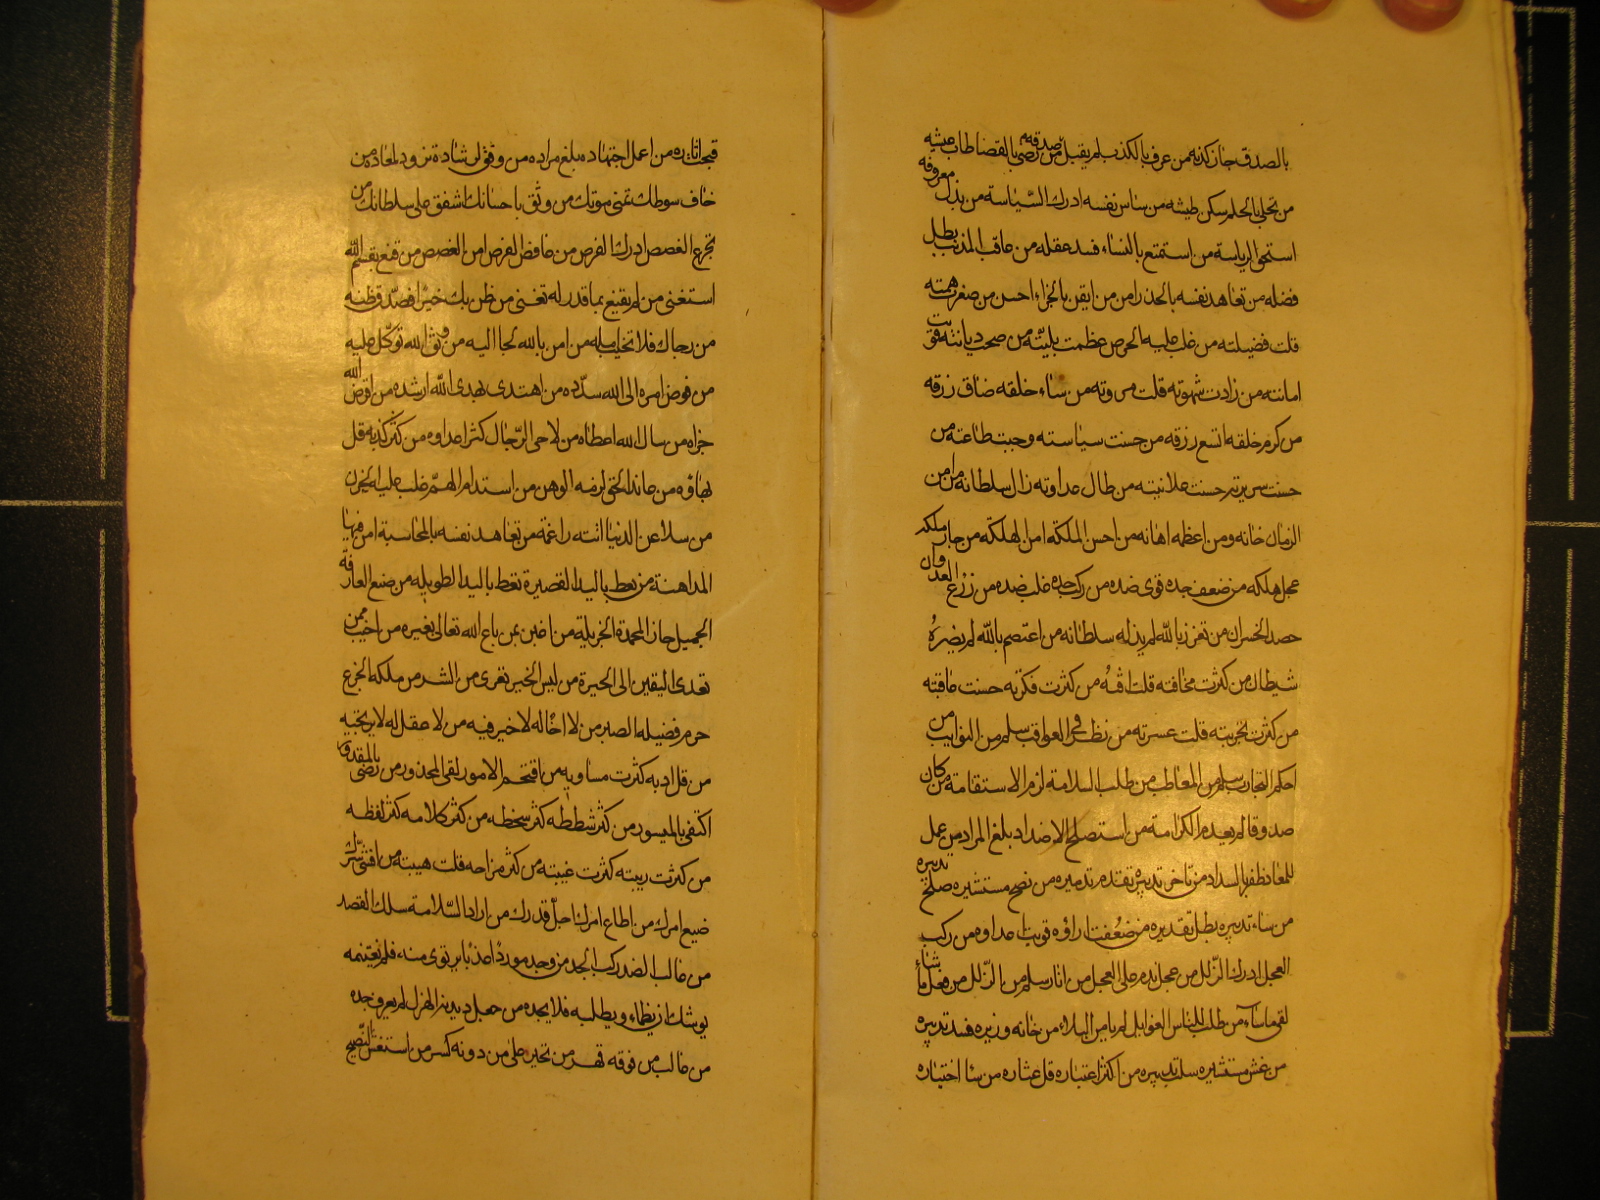 بالصدق جاز كذبه من عرف بالكذب لم يقبل صدقه من رضى بالقضا طاب عيشه
من تحلى بالحلم سكن طيشه من ساس نفسه ادرك السّياسة من بذل معروفه
استحق الرياسة من استمتع بالنساء فسد عقله من عاقب المذنب بطل
فضله من تعاهد نفسه بالحذر امن من ايقن بالجزاء احسن من صغرت همته
قلت فضيلته من غلب عليه الحرص عظمت بليّته من صحت ديانته قويت
امانته من زادت شهوته قلت مروته من ساء خلقه ضاق رزقه
من كرم خلقه اتسع رزقه من حسنت سياسته وجبت طاعته من
حسنت سريرته حسنت علانيته من طال عداوته زال سلطانه من امن
الزمان خانه ومن اعظمه اهانه من احسن الملكة امن الهلكة من جار ملكه
عجل هلكه من ضعف جده قوى ضده من ركب جده غلب ضده من زرع العدوان
حصد الخسران من تعزز بالله لم يذله سلطانه من اعتصم بالله لم يضره
شيطان من كثرت مخافته قلت افته من كثرت فكرته حسنت عاقبته
من كثرت تجربته قلت عسرته من نظر في العواقب سلم من النوايب من
احكم التجارب سلم من المعاطب من طلب السلامة لزم الاستقامة من كان
صدوقا لم يعدم الكرامة من استصلح الاضداد بلغ المراد من عمل
للمعاد ظفر بالسداد من تاخر تدبيره تقدم تدميره من نصح مستشيره صلح تدبيره
من ساء تدبيره بطل تقديره من ضعفت اراؤه قويت اعداوه من ركب
العجل ادرك الزّلل من عجل ندم على العجل من اناء سلم من الزّلل من فعل ما شاء
لقى ما ساء من طلب للناس الغوايل لم يامن البلاء من خانه وزيره فسد تدبيره
من غش مستشيره سلب تدبيره من اكثر اعتباره قل عثاره من ساء اختباره
قبحت اثاره من اعمل اجتهاده بلغ مراده من وفق لرشاده تزود لمعاده من
خاف سوطك تمنى موتك من وثق باحسانك اشفق على سلطانك من
تجرع الغصص ادرك الفرص من غافض الفرص امن الغصص من قنع بقسم الله
استغنى من لم يقنع بما قدر له تعنى من ظن بك خيرا فصدّق ظنه
من رجاك فلا تخيب امله من امن بالله لجا اليه من وثق بالله توكّل عليه
من فوض امره الى الله سدّده من اهتدى بهدى الله ارشده من اقرض الله
جزاه من سال الله اعطاه من لاحى الرّجال كثر اعداوه من كثر كذبه قل
بهاؤه من عاند الحق لزمه الوهن من استدام الهمّ غلب عليه الحزن
من سلا عن الدنيا اتته راغمة من تعاهد نفسه بالمحاسبة امن فيها
المداهنة من يعط باليد القصيرة يعط باليد الطويله من صنع العارفة
الجميل حاز المحمدة الجزيلة من اغبن ممن باع الله تعالى بغيره من اخيب ممن
تعدى اليقين الى الحيرة من لبس الخير تعرى من الشر من ملكه الجزع
حرم فضيله الصبر من لا اخا له لا خير فيه من لا عقل له لا يرتجيه
من قل ادبه كثرت مساويه من اقتحم الامور لقى المحذور من رضى بالمقدور
اكتفى بالميسور من كثر شططه كثر سخطه من كثر كلامه كثر لفظه
من كثرت ريبته كثرت غيبته من كثر مزاحه قلت هيبته من افشى سرّك
ضيع امرك من اطاع امرك اجلّ قدرك من اراد السّلامة سلك القصد
من غالب الضد ركب الجد من وجد موردا عذبا يرتوى منه فلم يغتنمه
يوشك ان يظماء ويطلبه فلا يجده من جعل ديدنه الهزل لم يعرف جده
من غالب من فوقه قهر من تجبر على من دونه كسر من استغش النّصيح